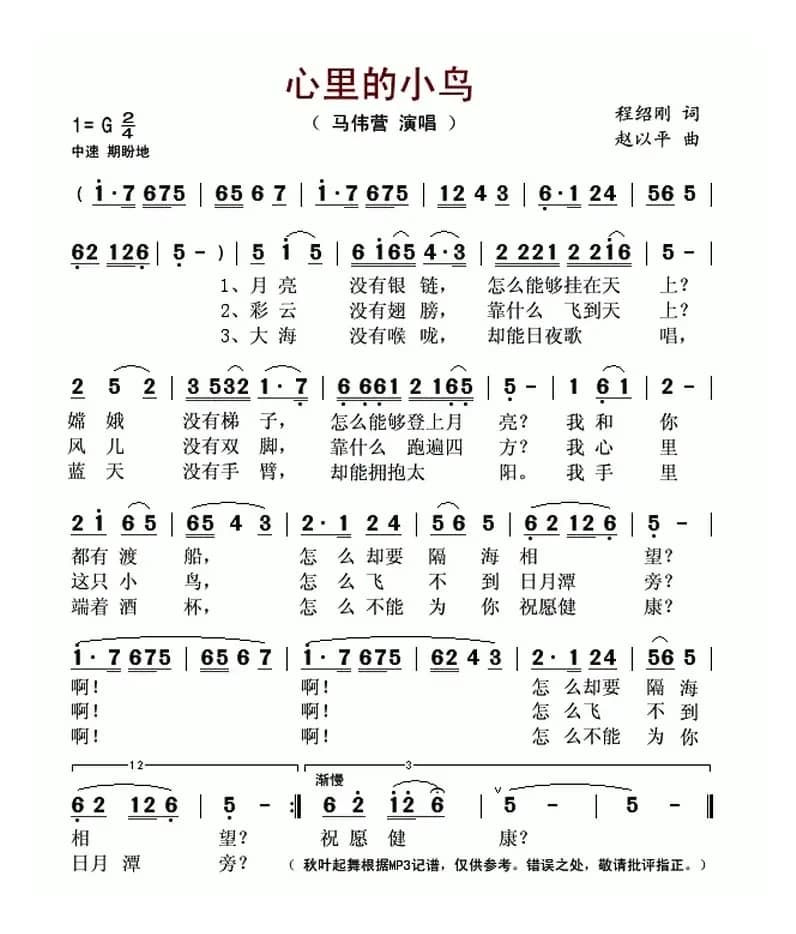 心里的小鸟
1= G 2/4
（ 马伟营 演唱 ）
程绍刚 词
中速 期盼地
赵以平 曲
( i·7 675 | 65 6 7 | i·7 675 | 12 4 3 | 6·1 24 | 56 5 |
62 126 | 5 - ) | 5 i 5 | 6 i65 4·3 | 2 221 2 2i6 | 5 - |
1、月 亮 没有银 链， 怎么能够挂在天 上？
2、彩 云 没有翅 膀， 靠什么 飞到天 上？
3、大 海 没有喉 咙， 却能日夜歌 唱，
2 5 2 | 3 532 1·7 | 6 661 2 165 | 5 - | 1 6 1 | 2 - |
嫦 娥 没有梯 子， 怎么能够登上月 亮？ 我 和 你
风 儿 没有双 脚， 靠什么 跑遍四 方？ 我 心 里
蓝 天 没有手 臂， 却能拥抱太 阳。 我 手 里
2 i 6 5 | 65 4 3 | 2·1 24 | 56 5 | 62 126 | 5 - |
都有 渡 船， 怎 么 却要 隔 海 相 望？
这只 小 鸟， 怎 么 飞 不 到 日月潭 旁？
端着 酒 杯， 怎 么 不能 为 你 祝愿健 康？
i·7 675 | 65 6 7 | i·7 675 | 62 4 3 | 2·1 24 | 56 5 |
啊！ 啊！ 怎 么却要 隔 海
啊！ 啊！ 怎 么飞 不 到
啊！ 啊！ 怎 么不能 为 你
12 3
渐慢
6 2 12 6 | 5 - :‖ 6 2 i2 6 | ∨ 5 - | 5 - ‖
相 望？ 祝 愿 健 康？
日月 潭 旁？ （ 秋叶起舞根据MP3记谱，仅供参考。错误之处，敬请批评指正。）